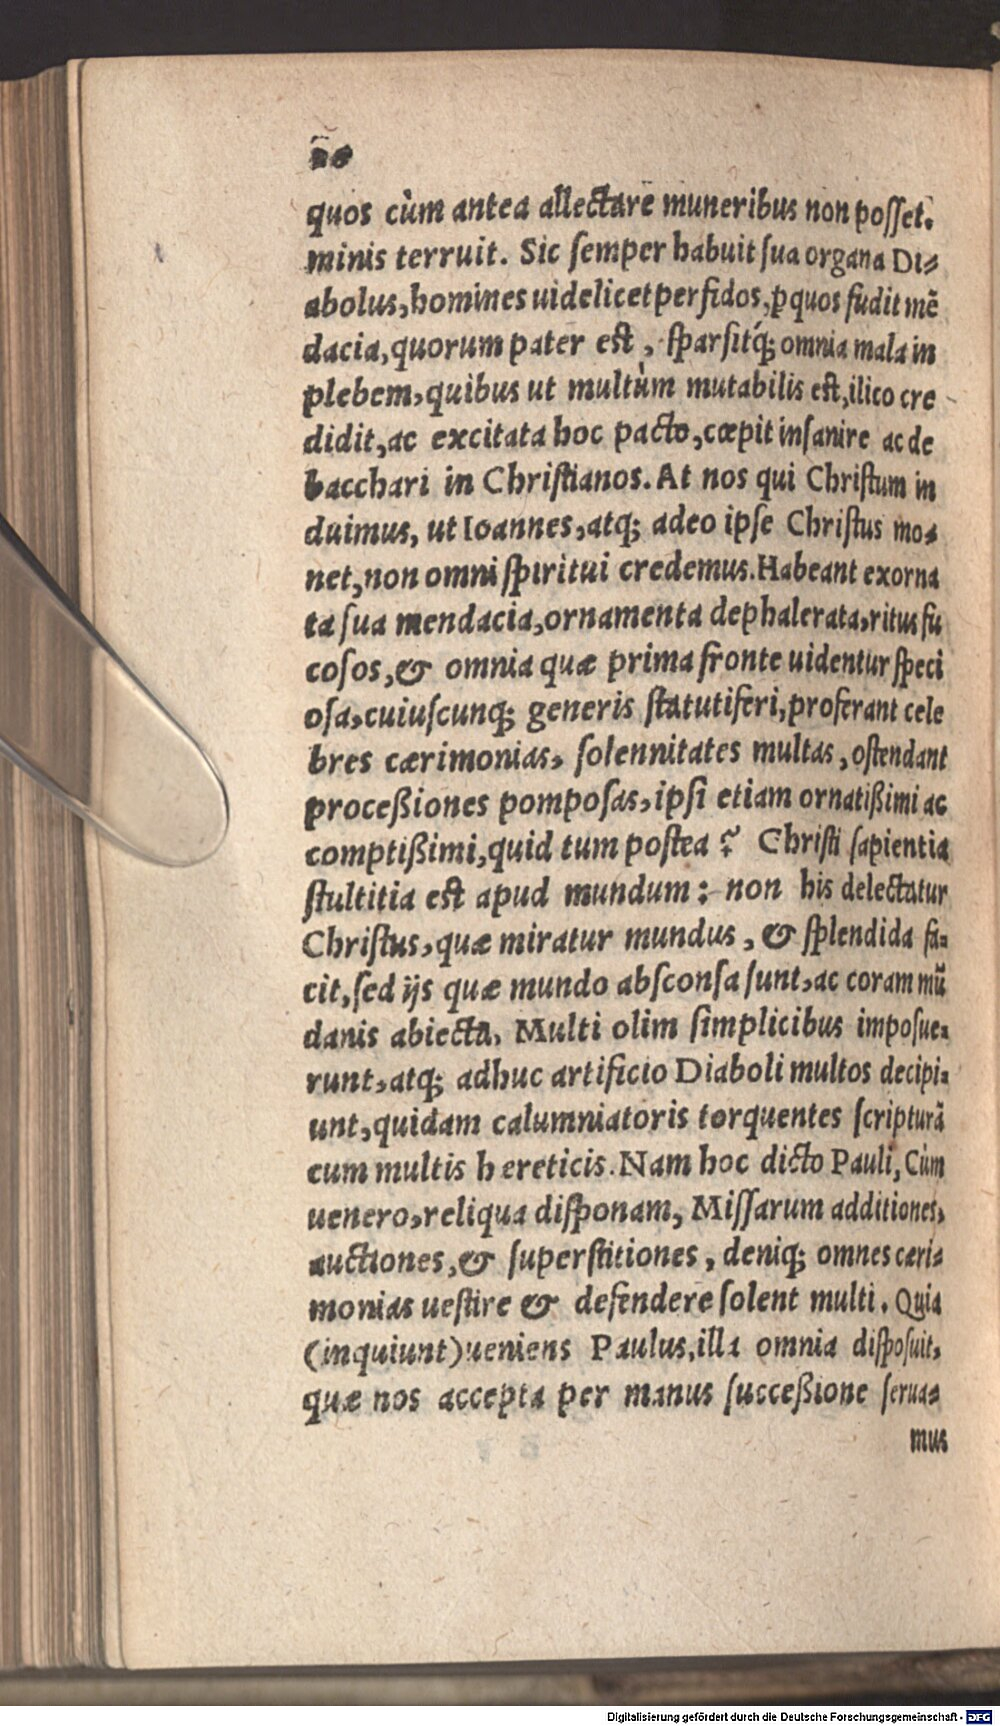 quos cùm antea allectare muneribus non poſſet.
minis terruit. Sic ſemper habuit ſua organa Di⸗
abolus, homines uidelicet perfidos, ꝑ quos fudit mẽ
dacia, quorum pater eſt, ſparſitq́; omnia mala in
plebem, quibus ut multùm mutabilis eſt, ilico cre
didit, ac excitata hoc pacto, cœpit inſanire ac de
bacchari in Chriſtianos. At nos qui Chriſtum in
duimus, ut Ioannes, atq; adeo ipſe Chriſtus mo⸗
net, non omni ſpiritui credemus. Habeant exorna
ta ſua mendacia, ornamenta dephalerata, ritus fu
coſos, & omnia quæ prima fronte uidentur ſpeci
oſa, cuiuſcunq; generis ſtatutiferi, proferant cele
bres cærimonias, ſolennitates multas, oſtendant
proceßiones pompoſas, ipſi etiam ornatißimi ac
comptißimi, quid tum poſtea? Chriſti ſapientia
ſtultitia eſt apud mundum: non his delectatur
Chriſtus, quæ miratur mundus, & ſplendida fa⸗
cit, ſed ijs quæ mundo abſconſa ſunt, ac coram mũ
danis abiecta. Multi olim ſimplicibus impoſue⸗
runt, atq; adhuc artificio Diaboli multos decipi⸗
unt, quidam calumniatoris torquentes ſcripturã
cum multis hereticis. Nam hoc dicto Pauli, Cùm
uenero, reliqua diſponam, Miſſarum additiones,
auctiones, & ſuperſtitiones, deniq; omnes cæri⸗
monias ueſtire & defendere ſolent multi. Quia
(inquiunt) ueniens Paulus, illa omnia diſpoſuit,
quæ nos accepta per manus ſucceßione ſerua⸗
mus
Digitalisierung gefördert durch die Deutsche Forschungsgemeinschaft - DFG